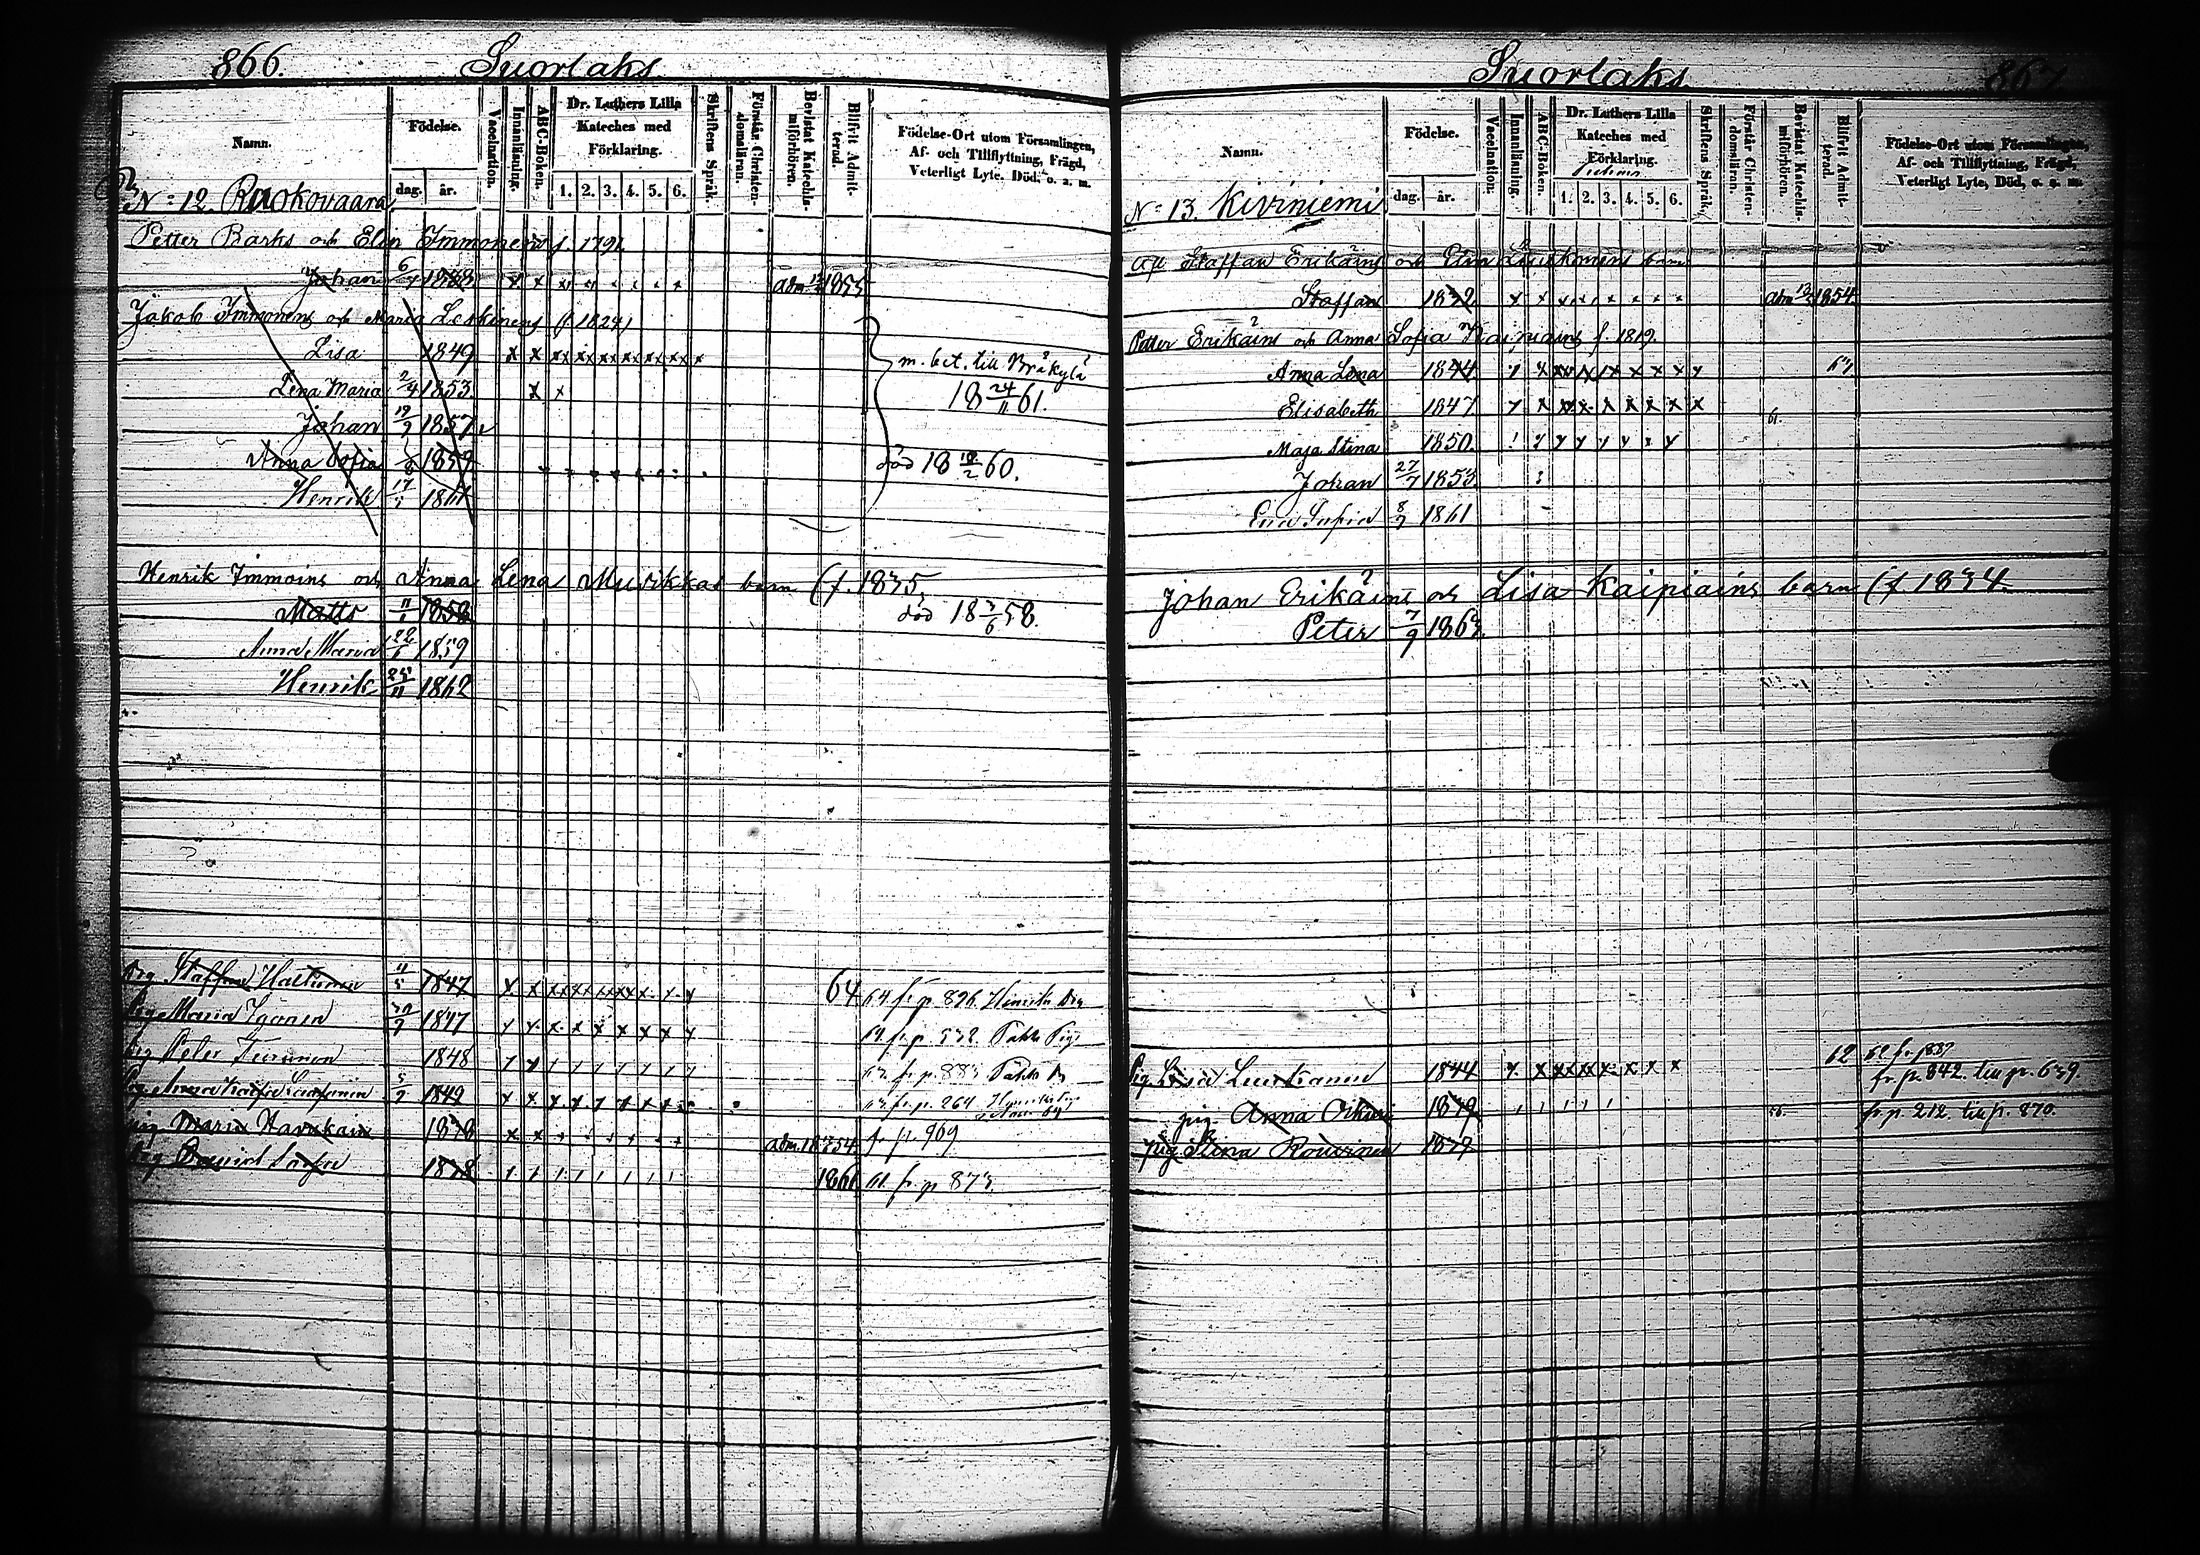 866.
Suorlaks
Namn.
Födelse.
dag.
år.
Vaccination.
Innanläsning.
ABC-Boken.
Dr. Luthers Lilla
Kateches med
Förklaring.
1. 2. 3. 4. 5. 6.
Skriftens Språk.
Förstår Christen-
domsläran.
Bevistat Katechis-
miförhören.
Blifvit Admit-
terad.
Födelse-Ort utom Församlingen,
Af- och Tillflyttning, Frägd,
Veterligt Lyte, Död, o. s. m.
No 12. Ruokovaara
Petter Barks och Elin Immonens f. 1791.
Johan 6/7 1838 adm 1855
Jakob Immonens och Maria Leskinens (f. 1824)
Lisa 1849
m. bet. till Bräkylä
Lena Maria 2/4 1853
18 24/11 61.
Johan 19/9 1857
Anna Sofia 1859 död 18 12/2 60.
Henrik 17/5 1861
Henrik Immoins och Anna Lena Musikkas barn (f. 1835.
Matts 11/1 1858 död 18 3/6 58.
Anna Maria 22/5 1859
Henrik 25/11 1862
Drg Staffan Haltunen 11/5 1847 64 64 fr. p. 826. Henriks Drg
Pig Maria Igonen 30/9 1847 64 fr. p. 532 Pig
Drg Peter Turunen 1848 fr. p. 883
Pig Anna 5/9 1842 fr. p. 264
pig Maria Havukain 1838 adm. 1854 fr. p. 969
Drg 1861 61 fr. p 873.
Suorlaks
867
Namn.
Födelse.
dag.
år.
Vaccination.
Innanläsning.
ABC-Boken.
Dr. Luthers Lilla
Kateches med
Förklaring.
1. 2. 3. 4. 5. 6.
Skriftens Språk.
Förstår Christen-
domsläran.
Bevistat Katechis-
miförhören.
Blifvit Admit-
terad.
Födelse-Ort utom Församlingen,
Af- och Tillflyttning, Frägd,
Veterligt Lyte, Död, o. s. m.
No 13. Kiviniemi
Staffan Erikäins och Elin Leuskonens barn
Staffan 1832 adm 13/5 1854
Petter Erikäins och Anna Sofia Kaipiains f. 1819.
Anna Lena 1844
Elisabeth 1847 61.
Maja Stina 1850.
Johan 27/7 1853
Eva Sofia 8/9 1861
Johan Erikäins och Lisa Kaipiains barn (f. 1834.
Peter 7/9 1863.
Pig Lisa 1844 62 62 fr. p 887
fr. p. 842. till p. 639.
pig Anna Oikari 1839 56. fr p. 212. till p. 870.
pig Stina Rouvinen